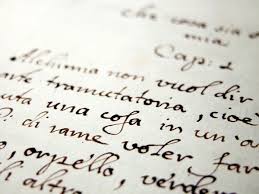 che cosa sia a
mia
Cap: 1
Alchimia non vuol dir
arte tramutatoria, cioè
uta una cosa in un'a
li di rame voler far
, orpello, verder
di altra